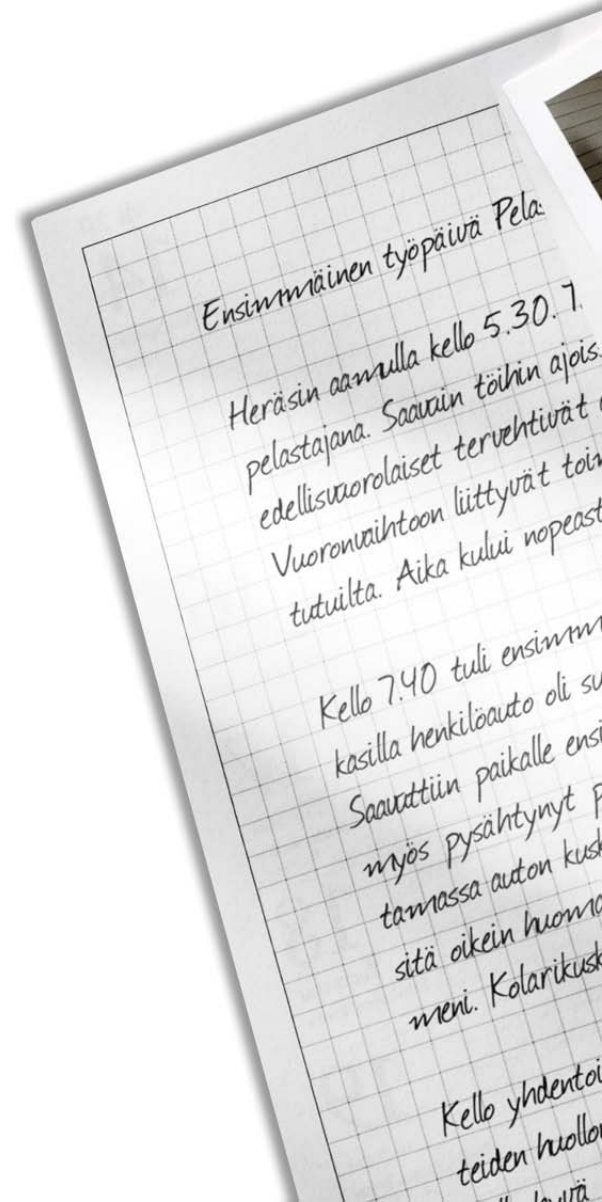 Ensimmäinen työpäivä Pela
Heräsin aamulla kello 5.30.
pelastajana. Saavuin töihin ajois
edellisvuorolaiset tervehtivät
Vuoronvaihtoon liittyvät toi
tutuilta. Aika kului nopeast
Kello 7.40 tuli ensimm
kasilla henkilöauto oli su
Saavuttiin paikalle ensi
myös pysähtynyt p
tamassa auton kusk
sitä oikein huoma
meni. Kolarikusk
Kello yhdentoi
teiden huollo
hyvä